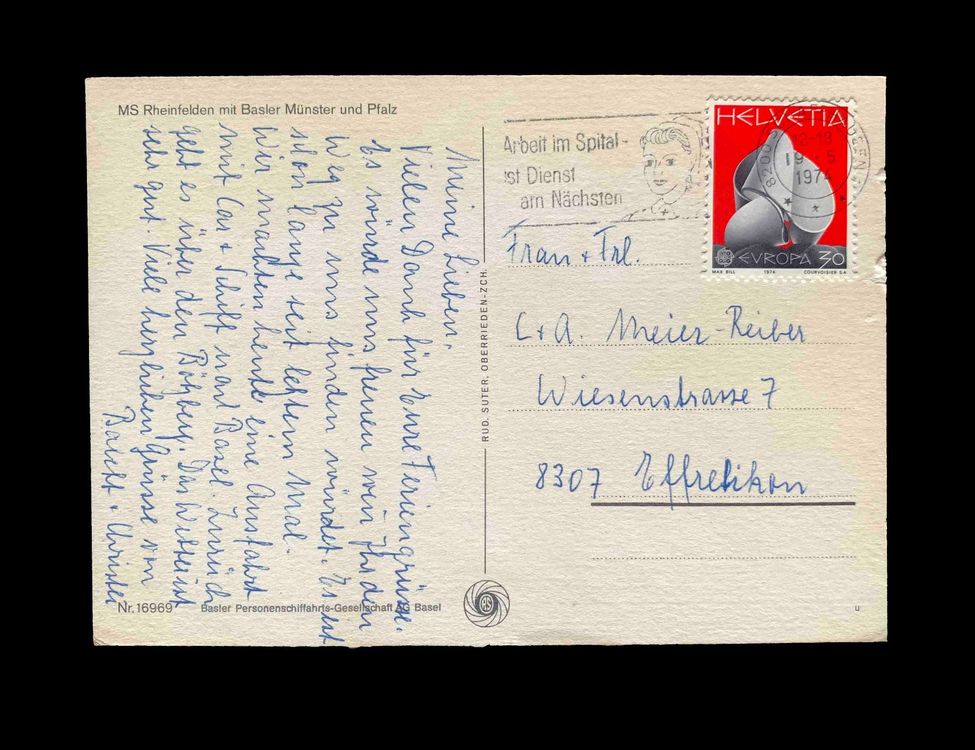 MS Rheinfelden mit Basler Münster und Pfalz
Meine Lieben,
Vielen Dank für Eure Feriengrüsse.
Es würde uns freuen wenn Ihr den
Weg zu uns finden würdet. Es ist
schon lange seit letztem Mal.
Wir machten heute eine Ausfahrt
mit Car + Schiff nach Basel. Zurück
geht es über den Bötzberg. Das Wetter ist
sehr gut. Viele herzlichen Grüsse von
Nr. 16969
Basler Personenschiffahrts-Gesellschaft AG Basel
RUD. SUTER, OBERRIEDEN-ZCH.
Arbeit im Spital -
ist Dienst
am Nächsten
8200
12-18
19.-5
1974
HELVETIA
EVROPA 30
MAX BILL 1974 COURVOISIER SA
Frau + Frl.
C + A. Meier-Reiber
Wiesenstrasse 7
8307 Effretikon
u